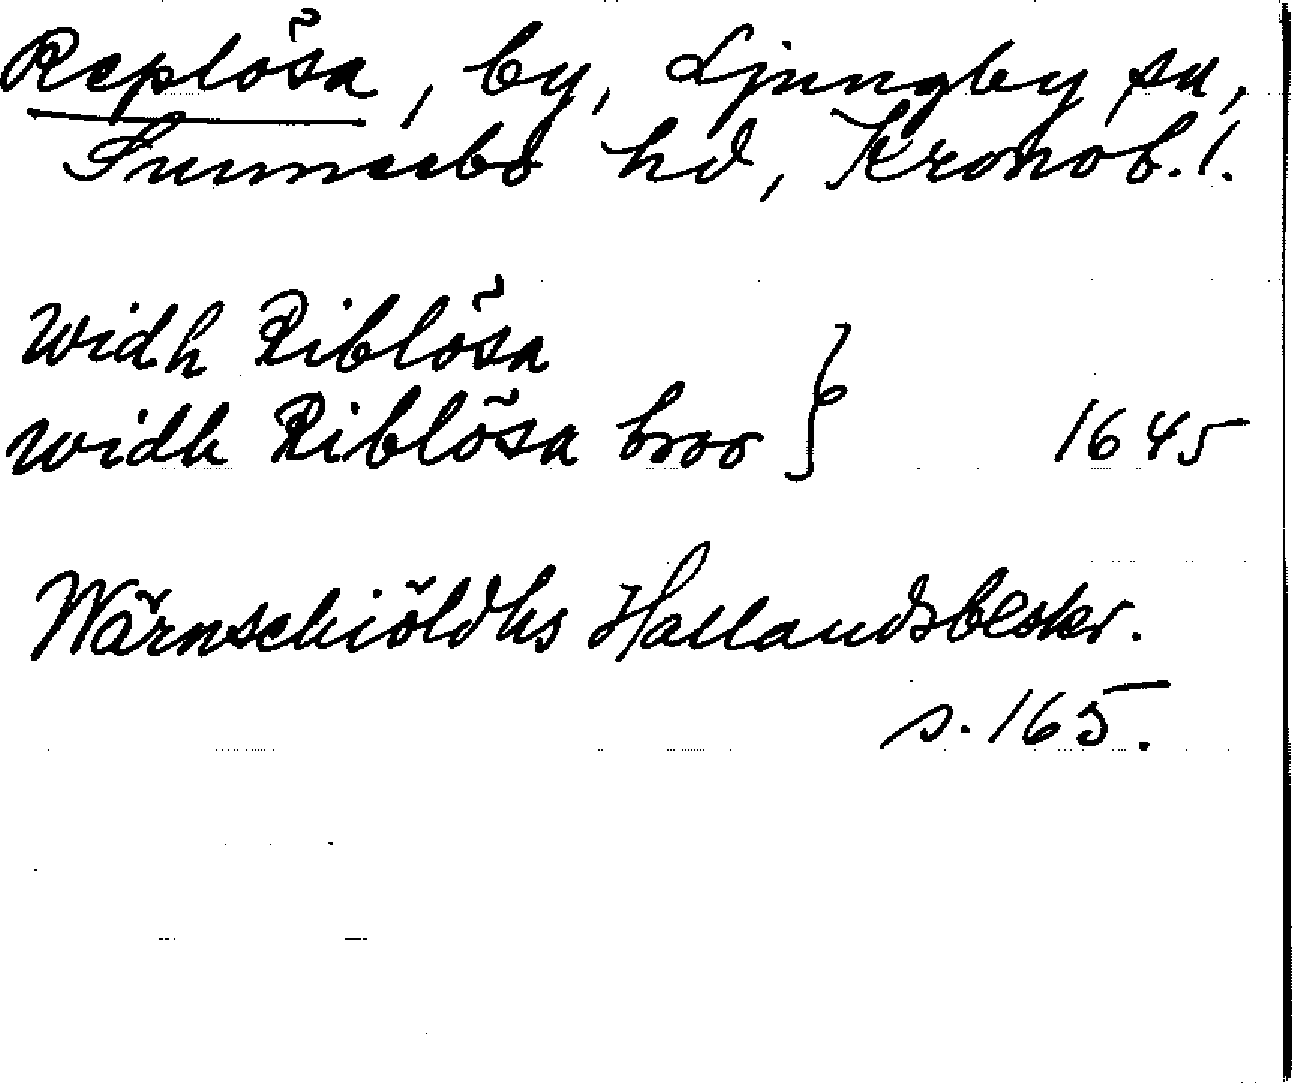 Replösa, by, Ljungby sn,
Sunnerbo hd, Kronob. l.
Widh Riblösa
widh Riblösa broo } 1645
Wärnschiöldhs Hallandsbeskr.
s. 165.